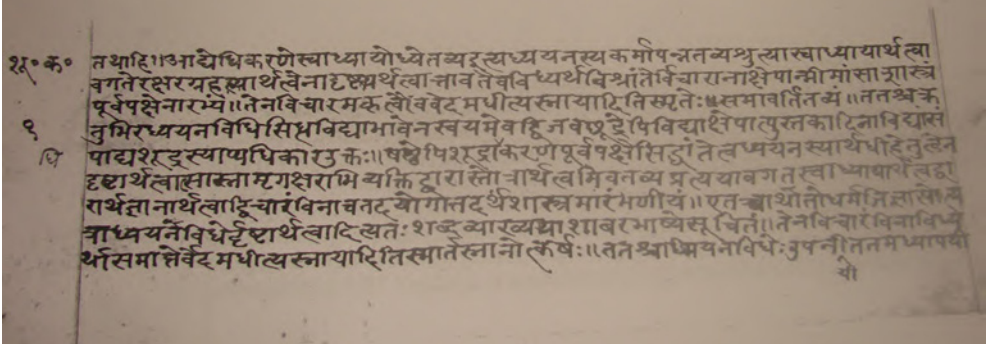 शू॰ क॰ तथाहि॥ आद्येधिकरणेस्वाध्यायोध्येतव्यइत्यध्ययनस्यकर्मापन्नतव्यश्रुत्यास्वाध्यायार्थत्वा
वगतेरक्षरग्रहण्यार्थत्वेनादृष्टार्थत्वात्तावतैवविध्यर्थविश्रांतेर्विचारानाक्षेपान्मीमांसाशास्त्रं
पूर्वपक्षेनारभ्यं॥ तेनविचारमकृत्वैववेदमधीत्यस्नायादितिस्मृतेः॥ समावर्तितव्यं॥ ततश्चक्र
१ तुभिरध्ययनविधिसिद्धविद्याभावेनस्वयमेवद्विजवच्छूद्रेपिविद्याक्षेपात्पुस्तकादिनाविद्यांसं
धि पाद्यशूद्रस्याप्यधिकारउक्तः॥ षष्ठेपिशूद्राकरणेपूर्वपक्षेसिद्धांतेत्वध्ययनस्यार्थधीहेतुत्वेन
दृष्टार्थत्वात्साम्नामृगक्षराभिव्यक्तिद्वारास्तोत्रार्थत्वमिवतव्यप्रत्ययावगतस्वाध्यायार्थत्वद्वा
रार्थज्ञानार्थत्वाद्विचारंविनाचतदयोगात्तदर्थशास्त्रमारंभणीयं॥ एतच्चाथातोधर्मजिज्ञासेत्य
त्राध्ययनविधेर्दृष्टार्थत्वादित्यतःशब्दव्याख्ययाशाबरभाष्येसूचितं॥ तेनविचारंविनाविध्य
र्थासमाप्तेर्वेदमधीत्यस्नायादितिस्मार्तस्नानोत्कर्षः॥ ततश्चाध्ययनविधेःउपनीततमध्यापयी
यी